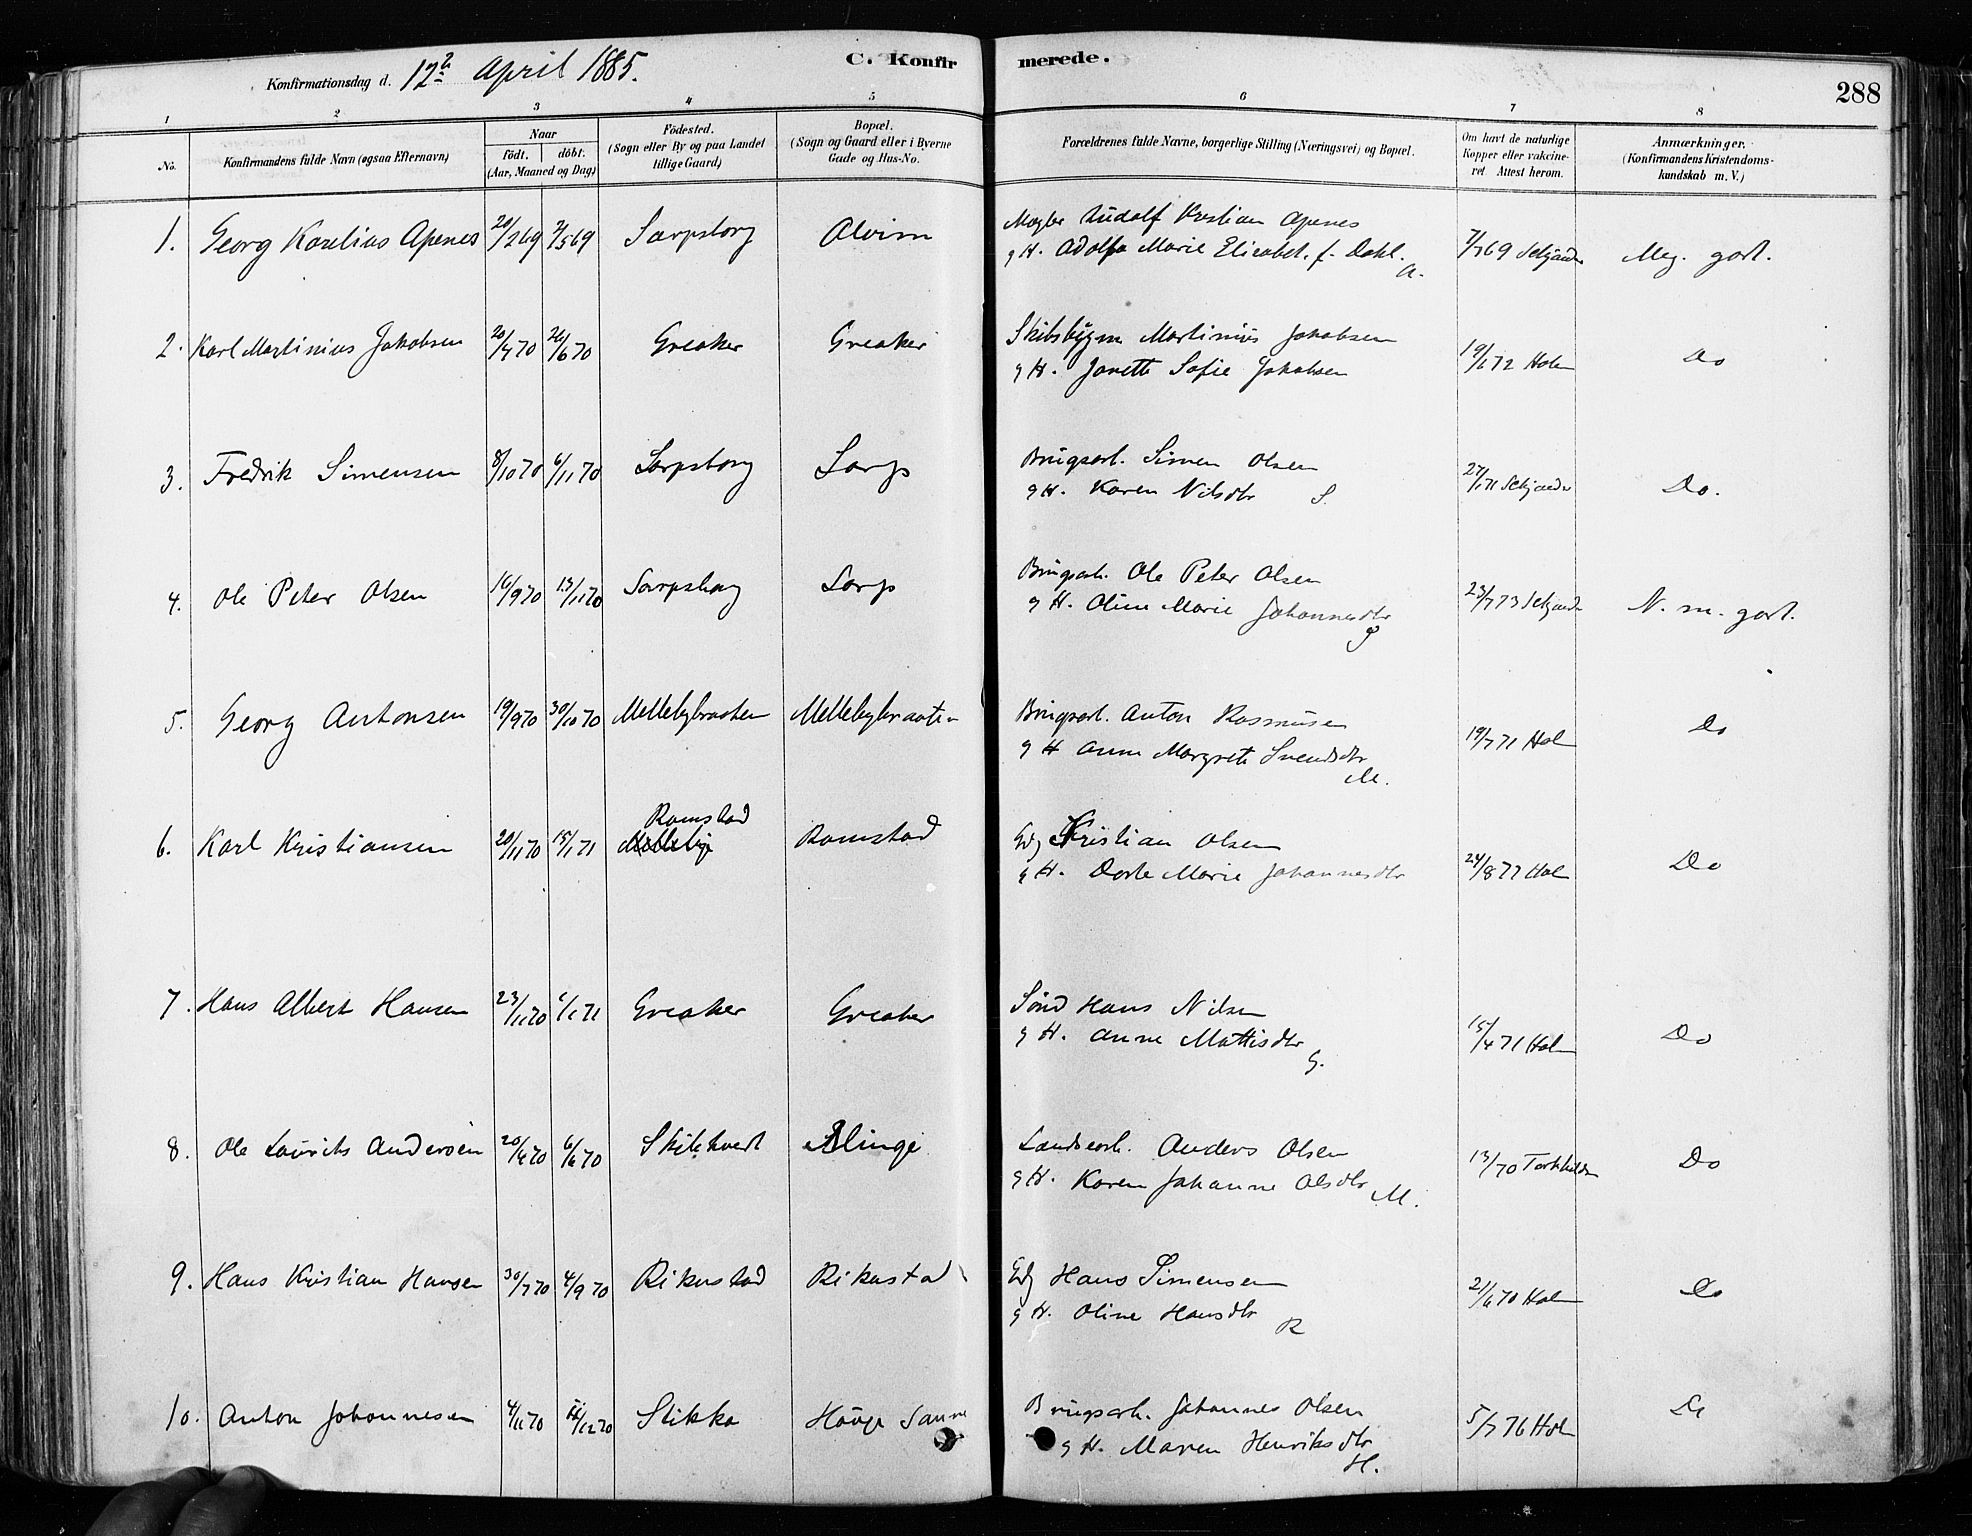 Konfirmationsdag d. 12te April 1885. C. Konfirmerede. 288
1 2 3 4 5 6 7 8
No. Konfirmandens fulde Navn (ogsaa Efternavn) Naar født. døbt. (Aar, Maaned og Dag) Fødested. (Sogn eller By og paa Landet tillige Gaard) Bopæl. (Sogn og Gaard eller i Byerne Gade og Hus-No. Forældrenes fulde Navne, borgerlige Stilling (Næringsvei) og Bopæl. Om havt de naturlige Kopper eller vakcineret Attest herom. Anmærkninger. (Konfirmandens Kristendomskundskab m. V.)
1. Georg Karelius Apenes 20/2 69 2/5 69 Sarpsborg Alvim Mægler Rudolf Kristian Apenes 7/7 69 Meg. godt.
g H. Adolfa Marie Elisabet f. Dahl. A.
2. Karl Martinius Jakobsen 20/4 70 26/6 70 Greaker Greaker Skibsbygm Martinius Jakobsen 19/6 72 Holm Do
g H. Janette Sofie Jakobsen
3. Fredrik Simensen 8/10 70 6/11 70 Sarpsborg Sarp Brugsarb. Simen Olsen 27/1 71 Do.
g H. Karen Nilsdtr S.
4. Ole Peter Olsen 16/9 70 13/11 70 Sarpsborg Sarp Brugsarb. Ole Peter Olsen 23/7 73 N. m. godt.
g H. Oline Marie Johannesdtr
5. Georg Antonsen 19/9 70 30/10 70 Mellebybraaten Mellebybraaten Brugsarb. Anton Rasmusen 19/7 71 Hol Do
g H Anne Margrete Svendsdtr M.
Romstad
6. Karl Kristiansen 20/11 70 15/1 71 Melleby Romstad Gdj Kristian Olsen 24/8 77 Hol Do
g H. Dorte Marie Johannesdtr
7. Hans Albert Hansen 23/11 70 6/1 71 Greaker Greaker Smd Hans Nilsen 15/4 71 Holm Do
g H. Anne Mattisdtr G.
8. Ole Laurits Andersen 20/4 70 6/6 70 Skiltvedt Alinge Landarb. Anders Olsen 13/ 70 Do
g H. Karen Johanne Olsdtr M.
9. Hans Kristian Hansen 30/7 70 4/9 70 Rikustad Rikustad Gdj Hans Simensen 21/6 70 Holm Do
g H. Oline Hansdtr R
10. Anton Johannesen 4/11 70 /12 70 Stikka Hauge Sanne Brugsarb. Johannes Olsen 5/7 76 Hol Do
g H. Maren Henriksdtr H.